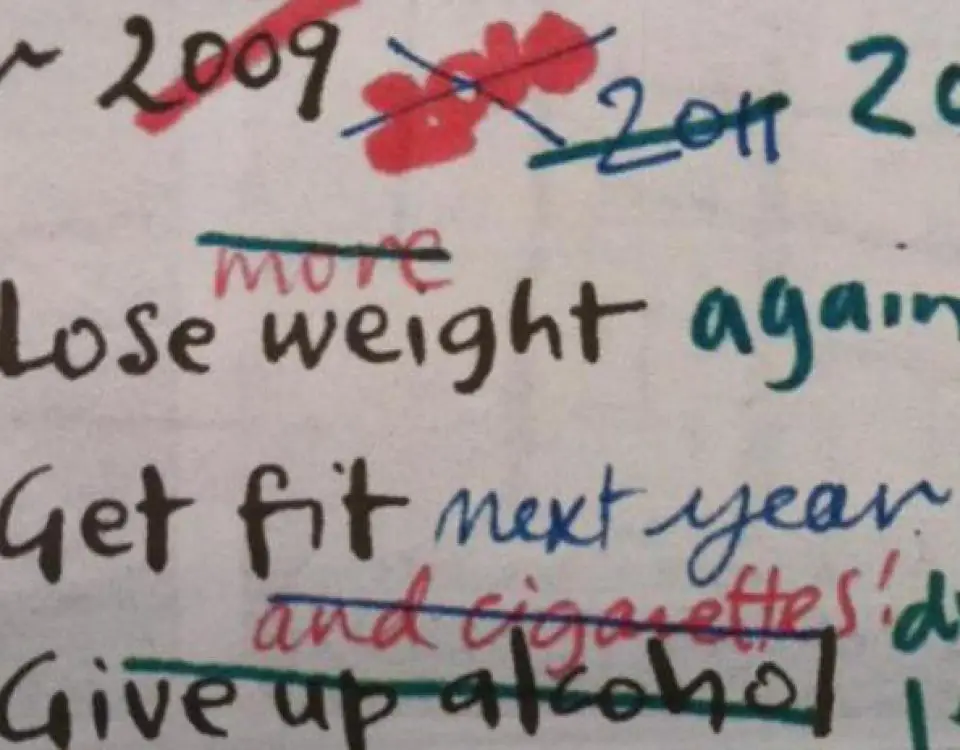 2009 2011
more
Lose weight again
Get fit next year
and cigarettes!
Give up alcohol